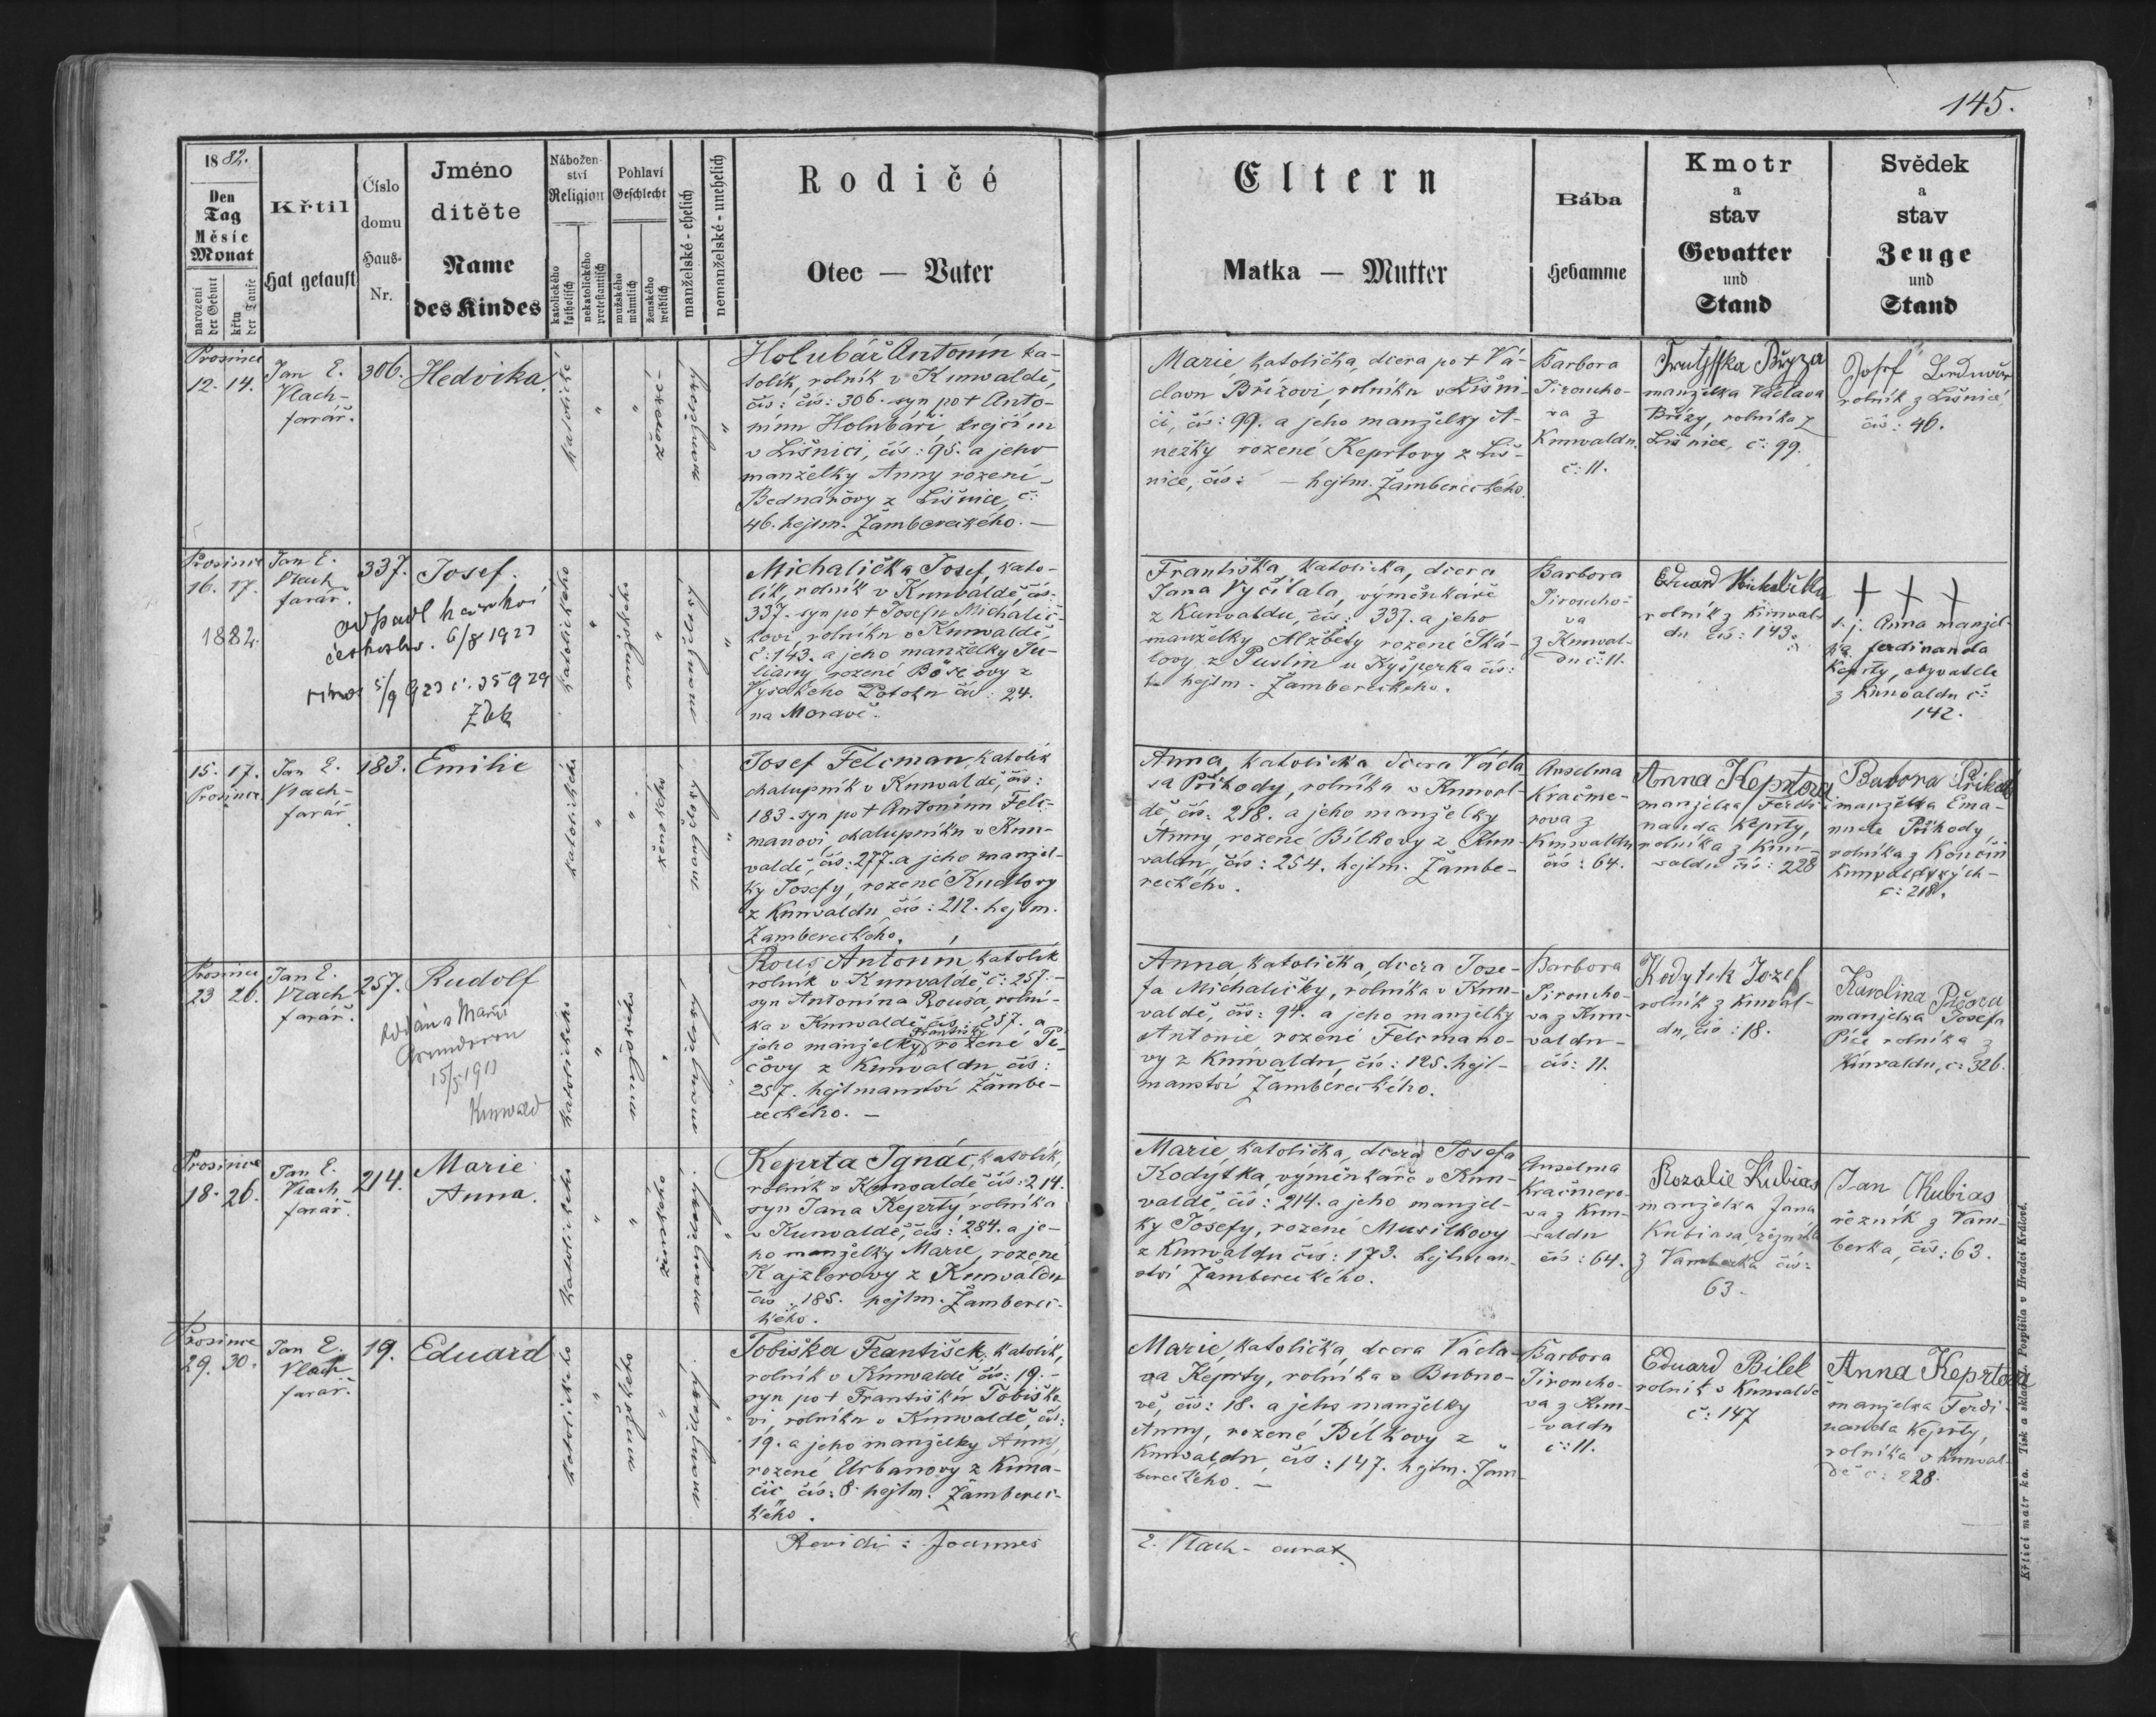 145.
1882.
Den
Tag
Měsíc
Monat
narození
der Geburt
křtu
der Taufe
Křtil
Hat getauft
Číslo
domu
Haus-
Nr.
Jméno
dítěte
Name
des Kindes
Nábožen-
ství
Religion
katolického
katholisch
nekatolického
protestantisch
Pohlaví
Geschlecht
mužského
männlich
ženského
weiblich
manželské - ehelich
nemanželské - unehelich
Rodičé
Otec — Vater
Eltern
Matka — Mutter
Bába
Hebamme
Kmotr
a
stav
Gevatter
und
Stand
Svědek
a
stav
Zeuge
und
Stand
Prosince
12. 14.
Jan E.
Vlach-
farář.
306.
Hedvika.
katolické
"
"
ženské-
manželský
"
Holubář Antonín ka-
tolík, rolník v Kunvaldě,
čís: čís: 306. syn po + Anto-
nínu Holubáři krejčím
v Lišnici, čís: 95. a jeho
manželky Anny rozené
Bednářovy z Lišnice, č:
46. hejtm. Žambereckého. —
Marie, katolička, dcera po + Vá-
clavu Břízovi, rolníku v Lišni-
ci, čís: 99. a jeho manželky A-
nežky rozené Keprtovy z Liš-
nice, čís: — hejtm. Žambereckého.
Barbora
Jiroucho-
va z
Kunvaldu.
č: 11.
manželka Václava
Břízy, rolníka z
Lišnice, č: 99.
Josef
rolník z Lišnice,
čís: 46.
Prosince
16. 17.
1882.
Jan E.
Vlach
farář.
337.
Josef.
odpadl
českoslov. 6/8 1923
5/9 923
katolického
"
mužského
"
manželský
"
Michalička Josef, kato-
lík, rolník v Kunvaldě, čís.
337. syn po + Josefu Michalič-
kovi, rolníku v Kunvaldě,
č: 143. a jeho manželky Ju-
liany, rozené
Vysokého Potoku čís: 24.
na Moravě.
Františka katolička, dcera
Jana Vyčítala, výměnkáře
z Kunvaldu, čís: 337. a jeho
manželky Alžběty rozené Ská-
lovy z Pustin u Kyšperka čís:
hejtm. Žambereckého.
Barbora
Jiroucho-
va
z Kunval-
du č: 11.
Eduard Michalička
rolník z Kunval-
du čís: 143.
+ + +
t. j. Anna manžel-
ka Ferdinanda
Keprty, obyvatele
z Kunvaldu č:
142.
15. 17.
Prosince
Jan E.
Vlach-
farář
183.
Emilie
katolického
"
"
ženského
manželský
"
Josef Felcman, katolík
chalupník v Kunvaldě, čís:
183. syn po + Antonínu Felc-
manovi, chalupníku v Kun-
valdě, čís: 277. a jeho manžel-
ky Josefy, rozené Kudlovy
z Kunvaldu čís: 212. hejtm.
Žambereckého.
Anna, katolička dcera Václa-
va Příhody, rolníka v Kunval-
dě, čís: 218. a jeho manželky
Anny, rozené Bílkovy z Kun-
valdu, čís: 254. hejtm. Žambe-
reckého.
Anselma
Kračme-
rova z
Kunvaldu
čís: 64.
Anna Keprtova
manželka Ferdi-
nanda Keprty,
rolníka z Kun-
valdu čís: 228
manželka Ema-
nuele Příhody
rolníka z Končin
Kunvaldských-
č: 218.
Prosince
23 26.
Jan E.
Vlach
farář.
257.
Rudolf
oddán s Marií
15/5 1911
Kunvald
katolického
"
mužského
"
manželský
"
Rous Antonín katolík
rolník v Kunvaldě, č: 257. —
syn Antonína Rousa, rolní-
ka v Kunvaldě čís: 257. a
Františky
jeho manželky rozené Pí-
čovy z Kunvaldu čís:
257. hejtmanství Žambe-
reckého. —
Anna, katolička, dcera Jose-
fa Michaličky, rolníka v Kun-
valdě, čís: 94. a jeho manželky
Antonie, rozené Felcmano-
vy z Kunvaldu, čís: 125. hejt-
manství Žambereckého.
Barbora
Jiroucho-
va z Kun-
valdu-
čís: 11.
Kodytek Jozef
rolník z Kunval-
du, čís: 18.
Karolina Píčova
manželka Josefa
Píče rolníka z
Kunvaldu, č: 326.
Prosince
18. 26.
Jan E.
Vlach
farář.
214.
Marie
Anna.
katolického
"
"
ženského
manželský
"
Keprta Ignác, katolík,
rolník v Kunvaldě čís: 214.
syn Jana Keprty, rolníka
v Kunvaldě, čís: 284. a je-
ho manželky Marie, rozené
Kajzlerovy z Kunvaldu
čís. 185. hejtm. Žamberec-
kého.
Marie, katolička, dcera Josefa
Kodytka, výměnkáře v Kun-
valdě, čís: 214. a jeho manžel-
ky Josefy, rozené Musilkovy
z Kunvaldu čís: 173. hejtman-
ství Žambereckého.
Anselma
Kračmero-
va z Kun-
valdu
čís: 64.
Rozalie Kubias
manželka Jana
Kubiasa, řezníka
z Vamberka čís:
63.
Jan Kubias
řezník z Vam-
berka, čís: 63.
Prosince
29. 30.
Jan E.
Vlach
farář.
19.
Eduard
katolického
"
mužského
"
manželský
"
Tobiška František, katolík,
rolník v Kunvaldě čís: 19. —
syn po + Františku Tobiško-
vi, rolníku v Kunvaldě, čís:
19. a jeho manželky Anny,
rozené Urbanovy z Kuna-
čic čís: 8 hejtm. Žamberec-
kého.
Marie, katolička, dcera Václa-
va Keprty, rolníka v Bubno-
vě, čís: 18. a jeho manželky
Anny, rozené Bílkovy z
Kunvaldu, čís: 147. hejtm. Žam-
bereckého. —
Barbora
Jiroucho-
va z Kun-
valdu
č: 11.
Eduard Bílek
rolník v Kunvaldě
č: 147
Anna Keprtova
manželka Ferdi-
nanda Keprty,
rolníka v Kunval-
dě č: 228.
Revidi: Joannes
E. Vlach - curat.
Křticí matrika. Tisk a sklad L. Pospíšila v Hradci Králové.